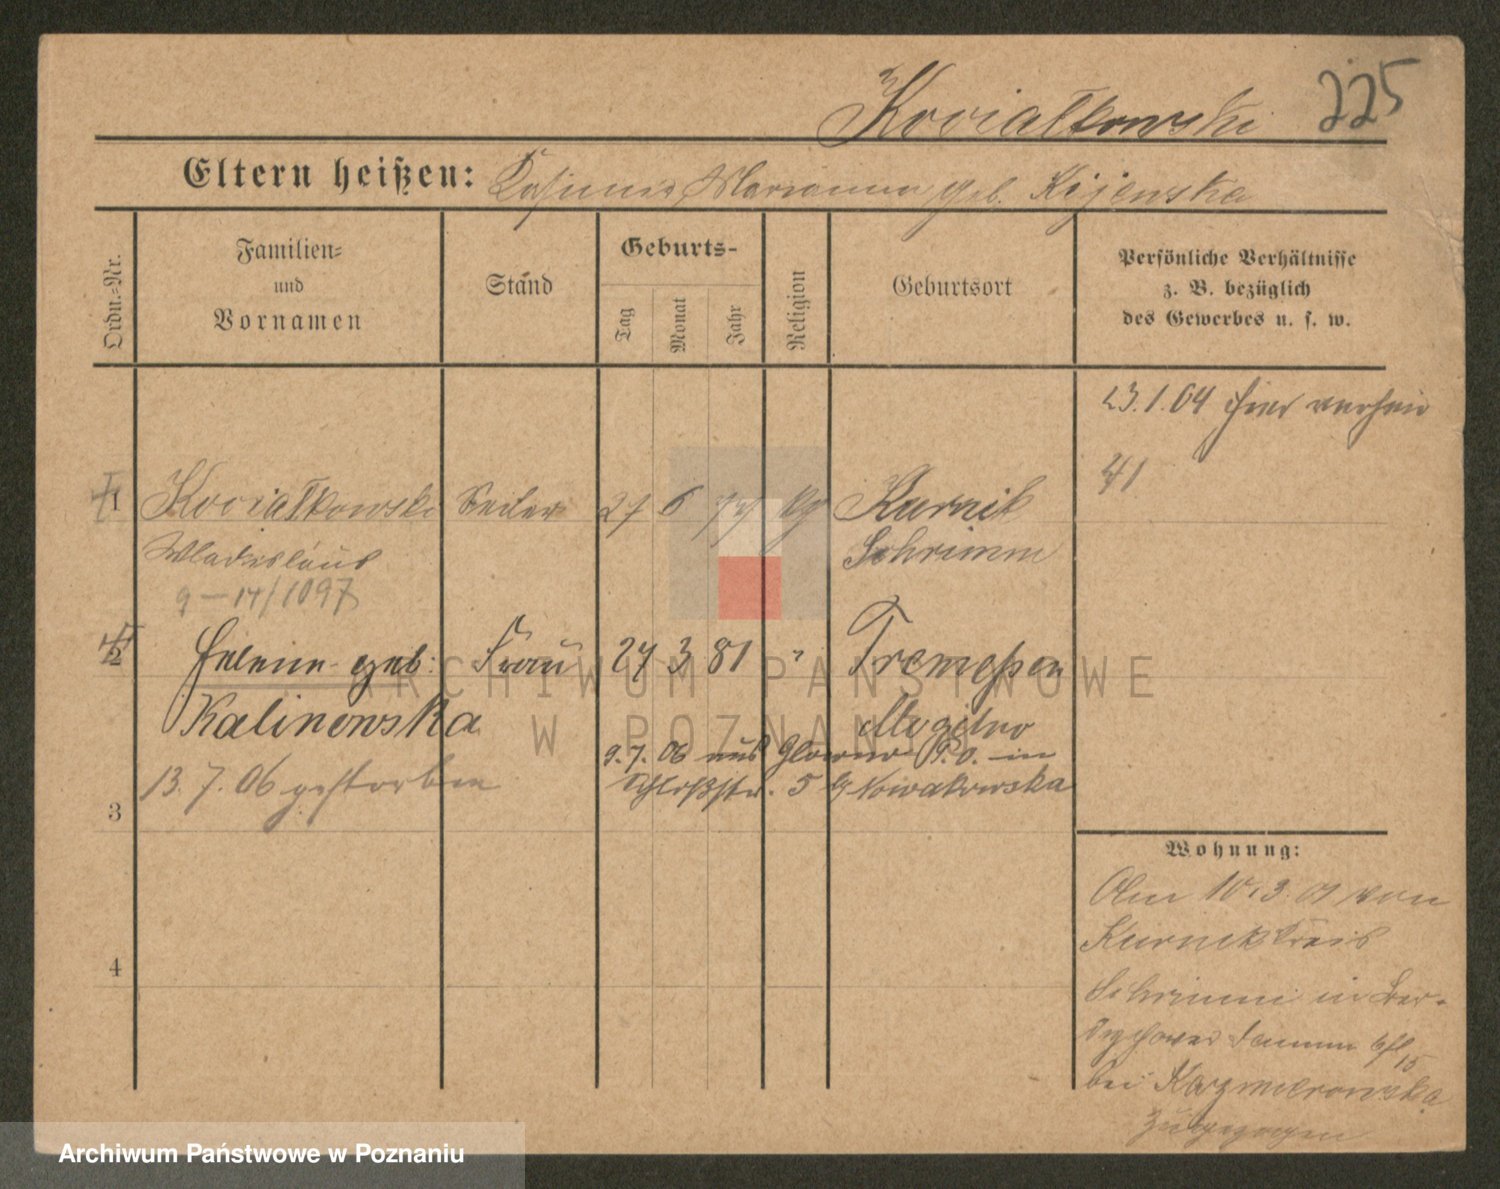 225
Kociałkowski
Eltern heißen: Kasimir, Marianna geb. Kijenska
Ordn.-Nr.
Familien-
und
Vornamen
Stand
Geburts-
Tag
Monat
Jahr
Religion
Geburtsort
Persönliche Verhältnisse
z. B. bezüglich
des Gewerbes u. s. w.
23.1.04 hier verheir
41
1 Kociałkowski Seiler 27 6 77 kg Kurnik
Wladislaus Schrimm
9-14/1097
2 Helene geb: Frau 24 3 81 " Tremessen
Kalinowska Mogilno
9.7.06 aus Glowno P.O. in
13.7.06 gestorben Schloßstr. 5 b/ Nowakowska
3
4
Wohnung:
Am 10.3.01 von
Kurnik Kreis
Schrimm in Ber-
dychower Damm
15
bei Kazmierowska
zugezogen
ARCHIWUM PAŃSTWOWE
W POZNANIU
Archiwum Państwowe w Poznaniu